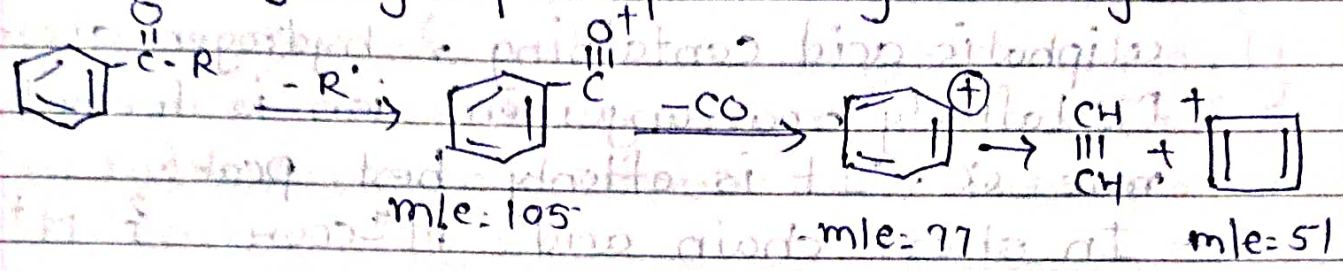 O O+
|| |||
C-R -R• C -CO + CH +
||| +
CH
m/e: 105 m/e= 77 m/e= 51